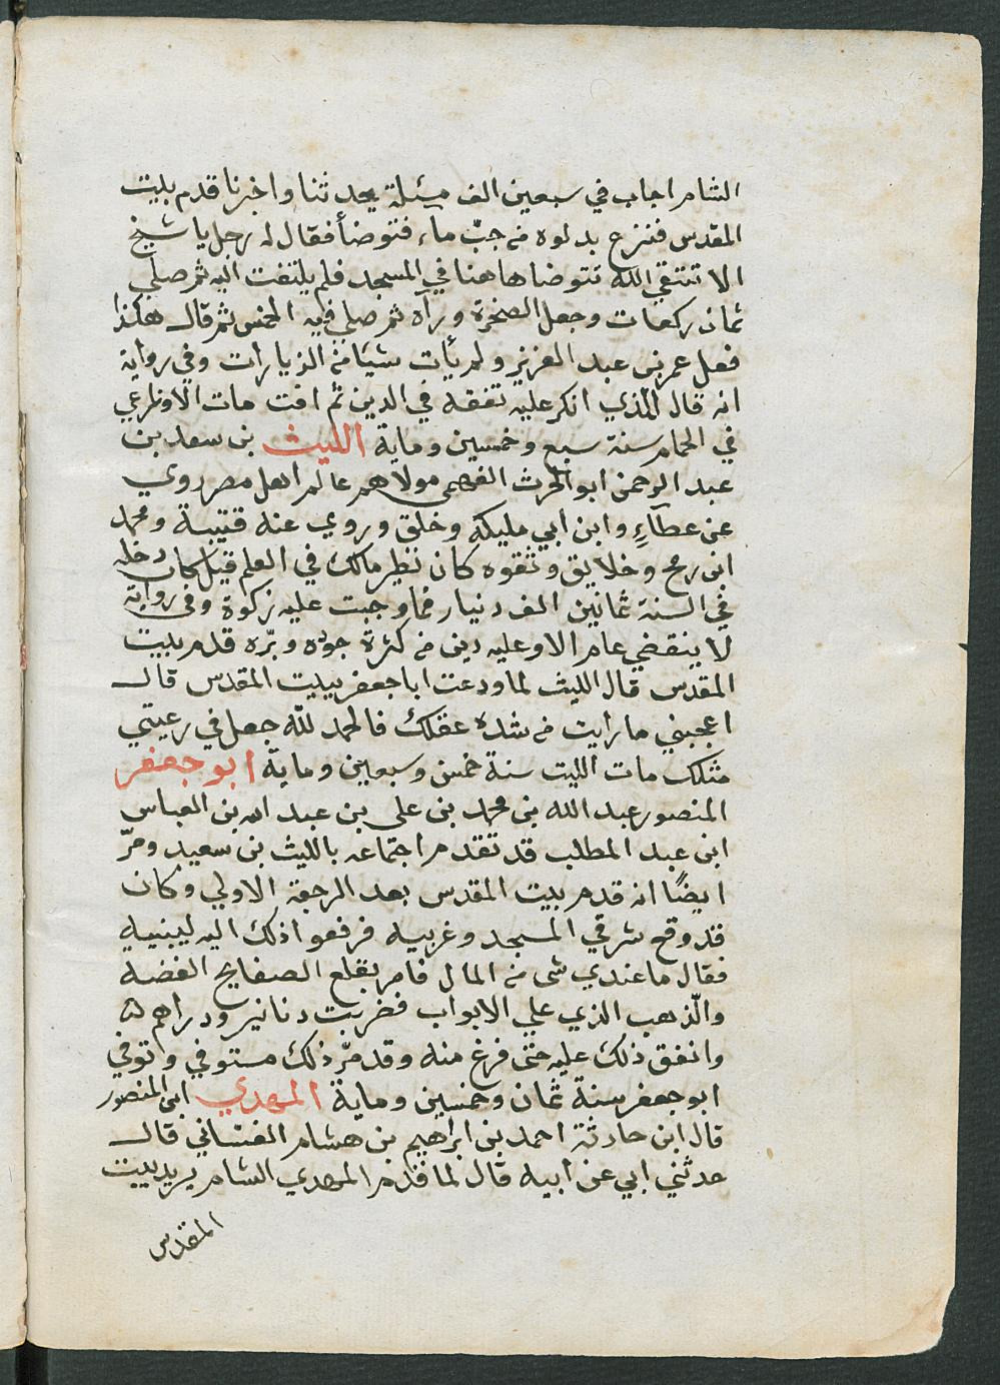 الشام اجاب في سبعين الف مسئلة يحدثنا واخبرنا قدم بيت
المقدس فنزع بدلوه من جبّ ماء فتوضأ فقال له رجل يا شيخ
الا تتقي الله تتوضا هاهنا في المسجد فلم يلتفت اليه ثم صلي
ثمان ركعات وجعل الصخرة ورآه ثم صلي فيه الخمس ثم قال هكذا
فعل عمر بن عبد العزيز ولم يأت شيئا من الزيارات وفي رواية
انه قال للذي انكر عليه تفقه في الدين ثم افت مات الاوزاعي
في الحمام سنة سبع وخمسين وماية الليث بن سعد بن
عبد الرحمن ابو الحرث الفهمي مولاهم عالم اهل مصر روي
عن عطآءٍ وابن أبي مليكه وخلق وروي عنه قتيبة ومحمد
ابن رمح وخلايق وثقوه كان نظير مالك في العلم قيل كان دخله
في السنة ثمانين الف دنيار فما وجبت عليه زكوة وفي رواية
لا ينقضي عام الا وعليه دين من كثرة جوده وبرّه قدم بيت
المقدس قال الليث لما ودعت ابا جعفر ببيت المقدس قال
اعجبني ما رايت من شدة عقلك فالحمد لله جعل في رعيتي
مثلك مات الليث سنة خمس وسبعين وماية ابو جعفر
المنصور عبد الله بن محمد بن علي بن عبد الله بن العباس
ابن عبد المطلب قد تقدم اجتماعه بالليث بن سعيد ومرّ
ايضًا انه قدم بيت المقدس بعد الرجفة الاولي وكان
قد وقع شرقي المسجد وغربيه فرفعوا ذلك اليه ليبنيه
فقال ما عندي شى من المال فامر بقلع الصفايح الفضة
والذهب الذي علي الابواب فضربت دنانير ودراهم
وانفق ذلك عليه حتى فرغ منه وقد مرّ ذلك مستوفي وتوفي
ابو جعفر سنة ثمان وخمسين وماية المهدي ابن المنصور
قال ابن حارثة احمد بن ابراهيم بن هشام الغساني قال
حدثني ابي عن أبيه قال لما قدم المهدي الشام يريد بيت
المقدس